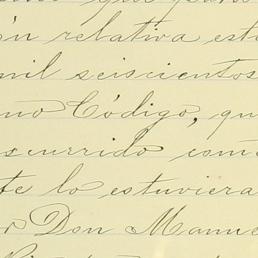 ón relativa est
mil seiscientos
no Código, qu
scurrido com
te lo estuviera
r Don Manue